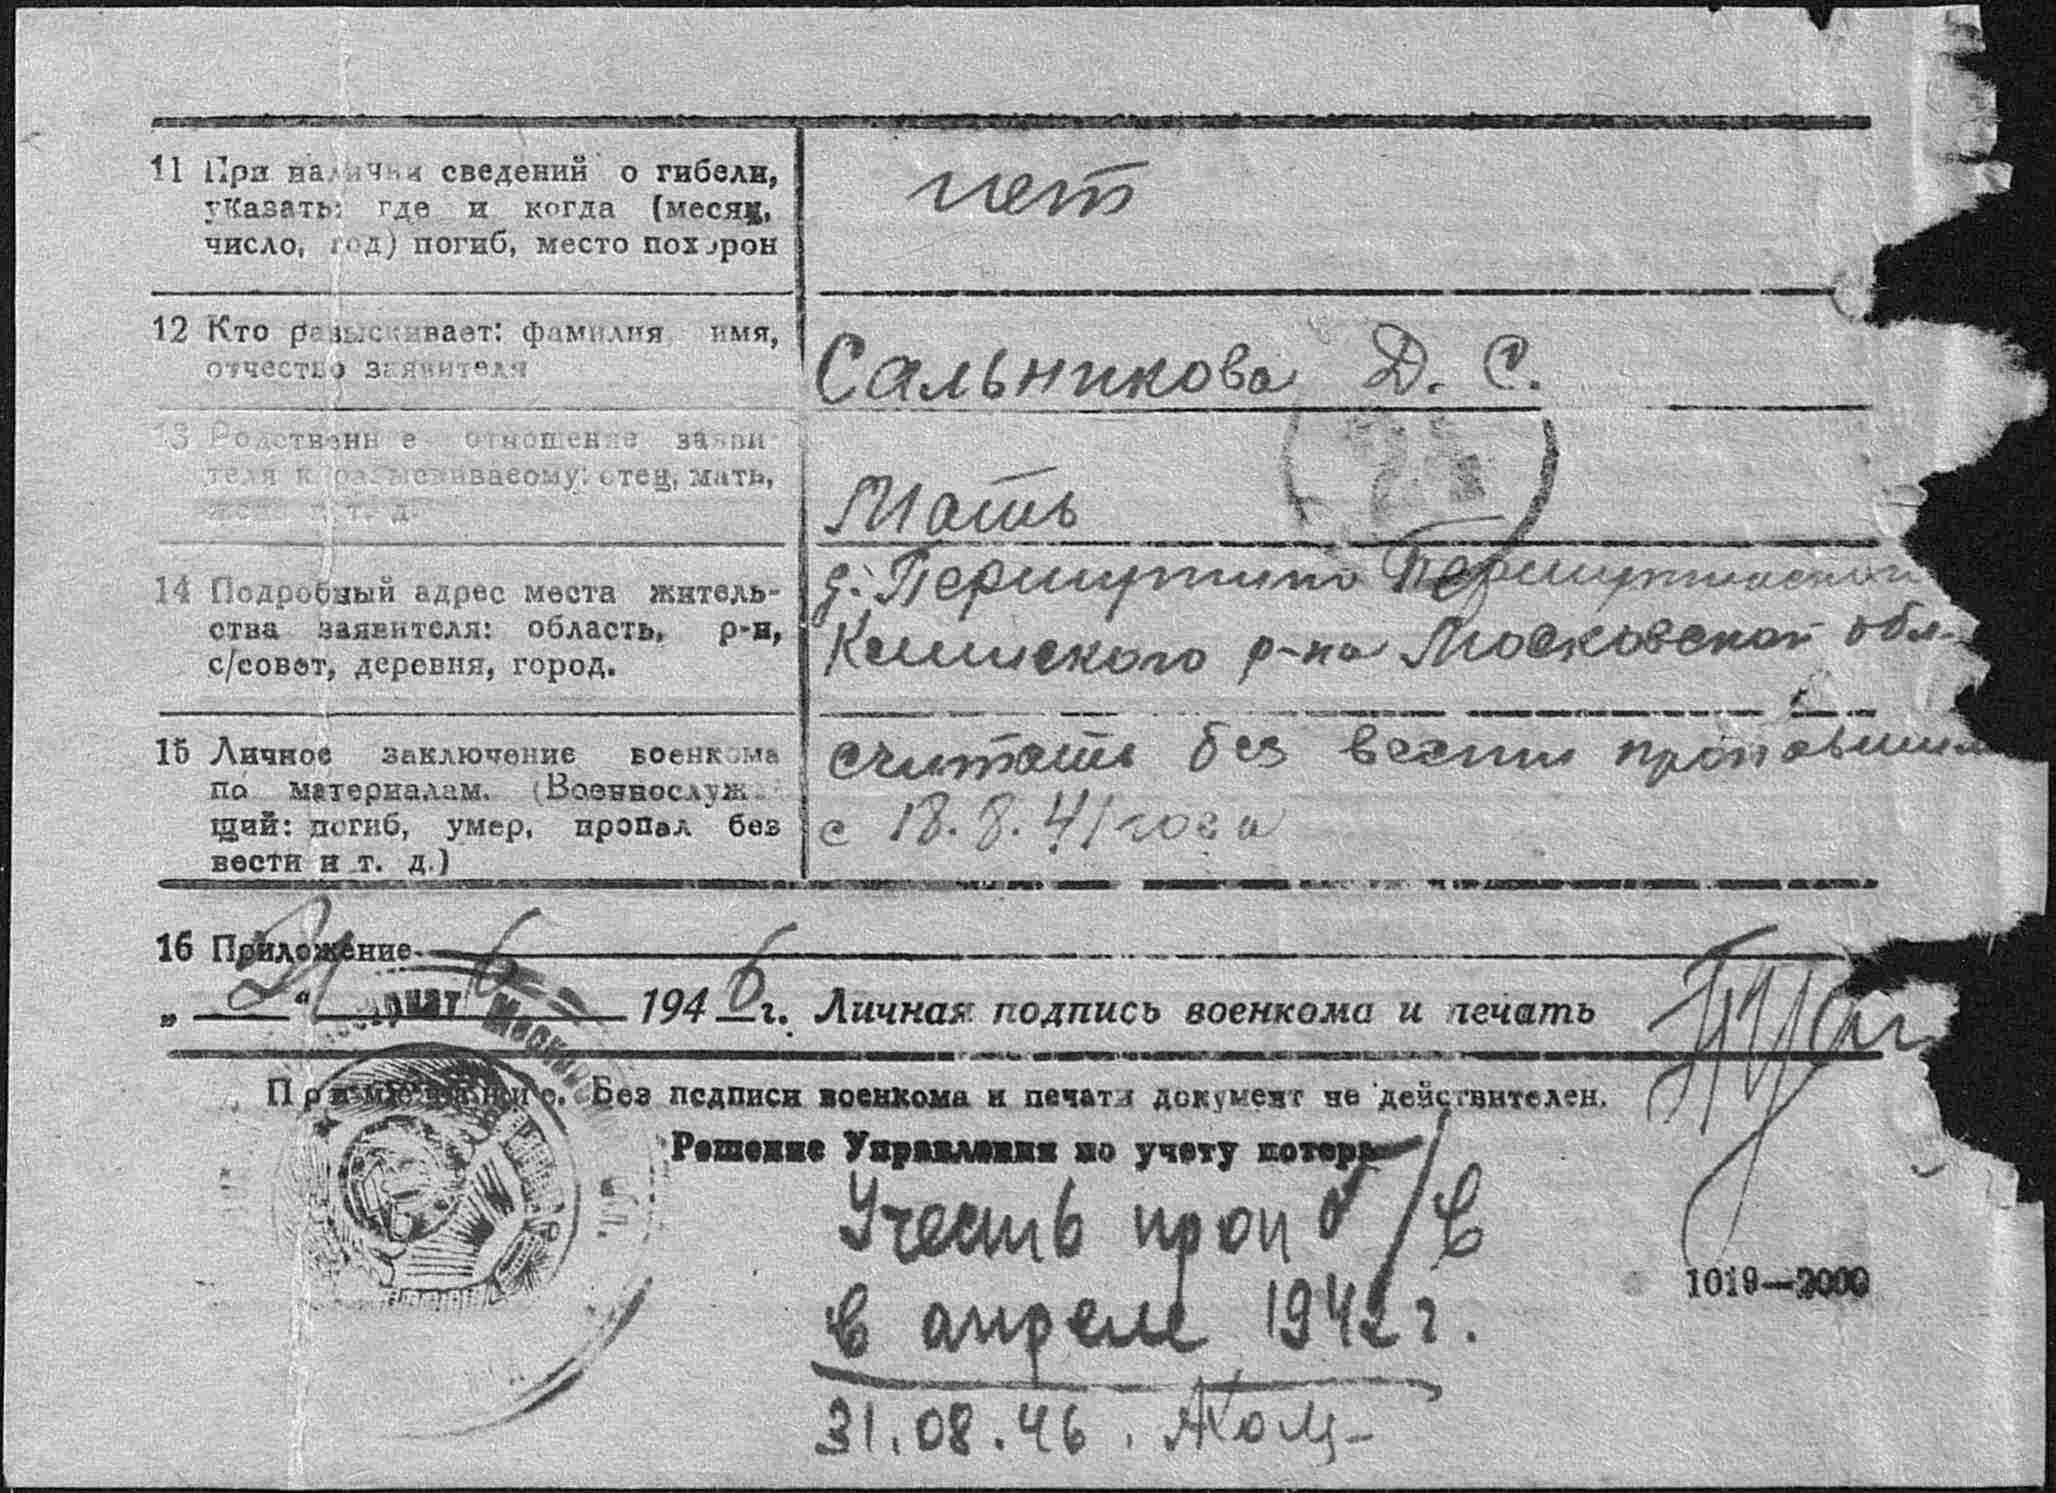 11 При наличии сведений о гибели,
указать: где и когда (месяц,
число, год) погиб, место похорон
нет
12 Кто разыскивает: фамилия имя,
отчество заявителя
Сальникова Д. С.
13 Родственное отношение заяви-
теля к разыскиваемому: отец, мать,
жена и т. д.
Мать
14 Подробный адрес места житель-
ства заявителя: область, р-н,
с/совет, деревня, город.
д. Першутино Першутинский
Клинского р-на Московской обл-
15 Личное заключение военкома
по материалам. (Военнослуж
щий: погиб, умер, пропал без
вести и т. д.)
считать без вести пропавшим
с 18.8.41 года
16 Приложение
„21“ 6 1946 г. Личная подпись военкома и печать
Примечание. Без подписи военкома и печати документ не действителен.
Решение Управления по учету потерь
Учесть проп б/в
в апреле 1942 г.
1019—2000
31.08.46.